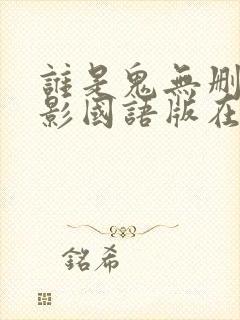 誰是鬼無刪
影國語版在
銘希